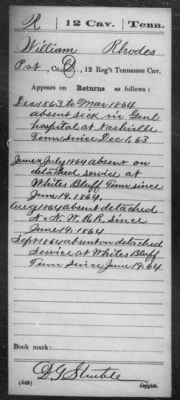 R | 12 Cav. | Tenn.
William Rhodes
Pvt, Co. D, 12 Reg't Tennessee Cav.
Appears on Returns as follows:
Dec 1863 to Mar 1864
absent sick in Genl
hospital at Nashville
Tenn since Dec 1, 63
June & July 1864 absent on
detached service at
Whites Bluff Tenn since
June 19, 1864.
Aug 1864 absent detached
N. & N. W. R.R. since
June 19, 1864
Sept 1864 absent on detached
Service at Whites Bluff
Tenn since June 19, 64.
Book mark:
(546)
Copyist.